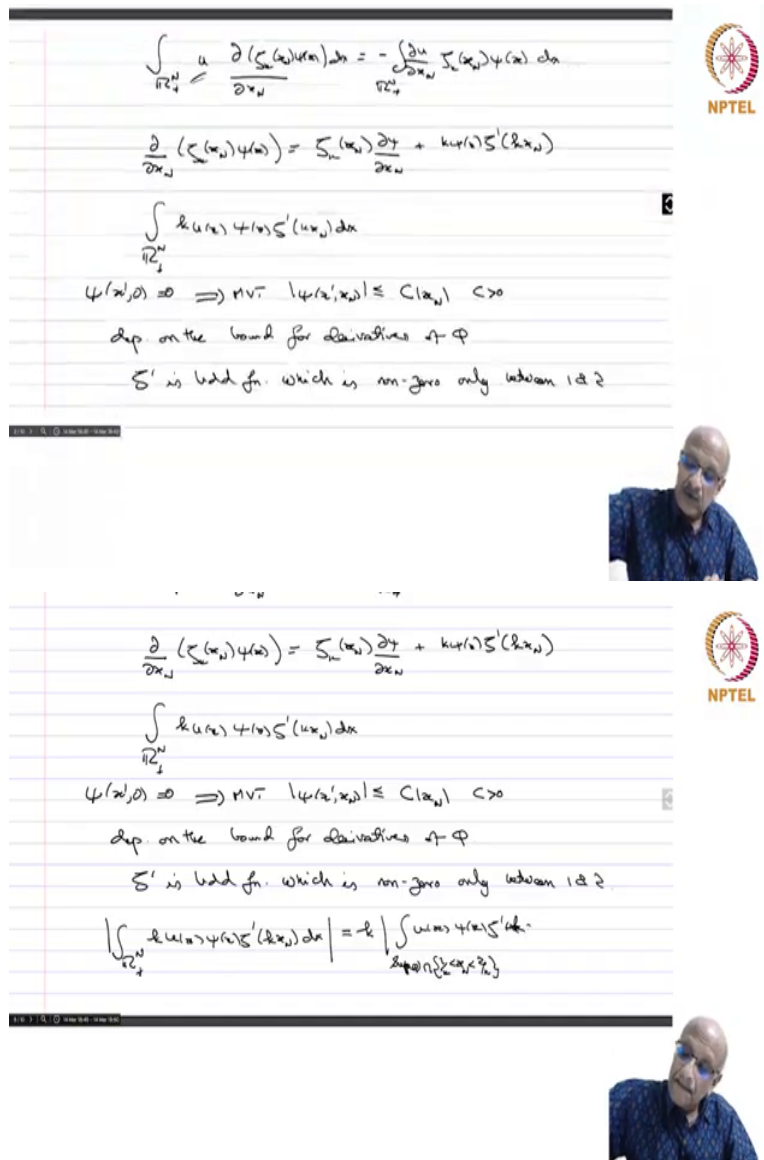 ∫_{ℝ^N_+} u ∂(ζ_k(x_N)ψ(x))/∂x_N dx = - ∫_{ℝ^N_+} ∂u/∂x_N ζ_k(x_N) ψ(x) dx
NPTEL
∂/∂x_N (ζ_k(x_N)ψ(x)) = ζ_k(x_N) ∂ψ/∂x_N + kψ(x)ζ'(kx_N)
∫_{ℝ^N_+} k u(x) ψ(x) ζ'(kx_N) dx
ψ(x',0) = 0 ⟹ MVT |ψ(x',x_N)| ≤ C|x_N| C>0
dep. on the bound for derivatives of φ
ζ' is bdd fn. which is non-zero only between 1 & 2
∂/∂x_N (ζ_k(x_N)ψ(x)) = ζ_k(x_N) ∂ψ/∂x_N + kψ(x)ζ'(kx_N)
NPTEL
∫_{ℝ^N_+} k u(x) ψ(x) ζ'(kx_N) dx
ψ(x',0) = 0 ⟹ MVT |ψ(x',x_N)| ≤ C|x_N| C>0
dep. on the bound for derivatives of φ
ζ' is bdd fn. which is non-zero only between 1 & 2.
|∫_{ℝ^N_+} k u(x) ψ(x) ζ'(kx_N) dx| = k |∫_{∩{1/k<x_N<2/k}} u(x) ψ(x) ζ'